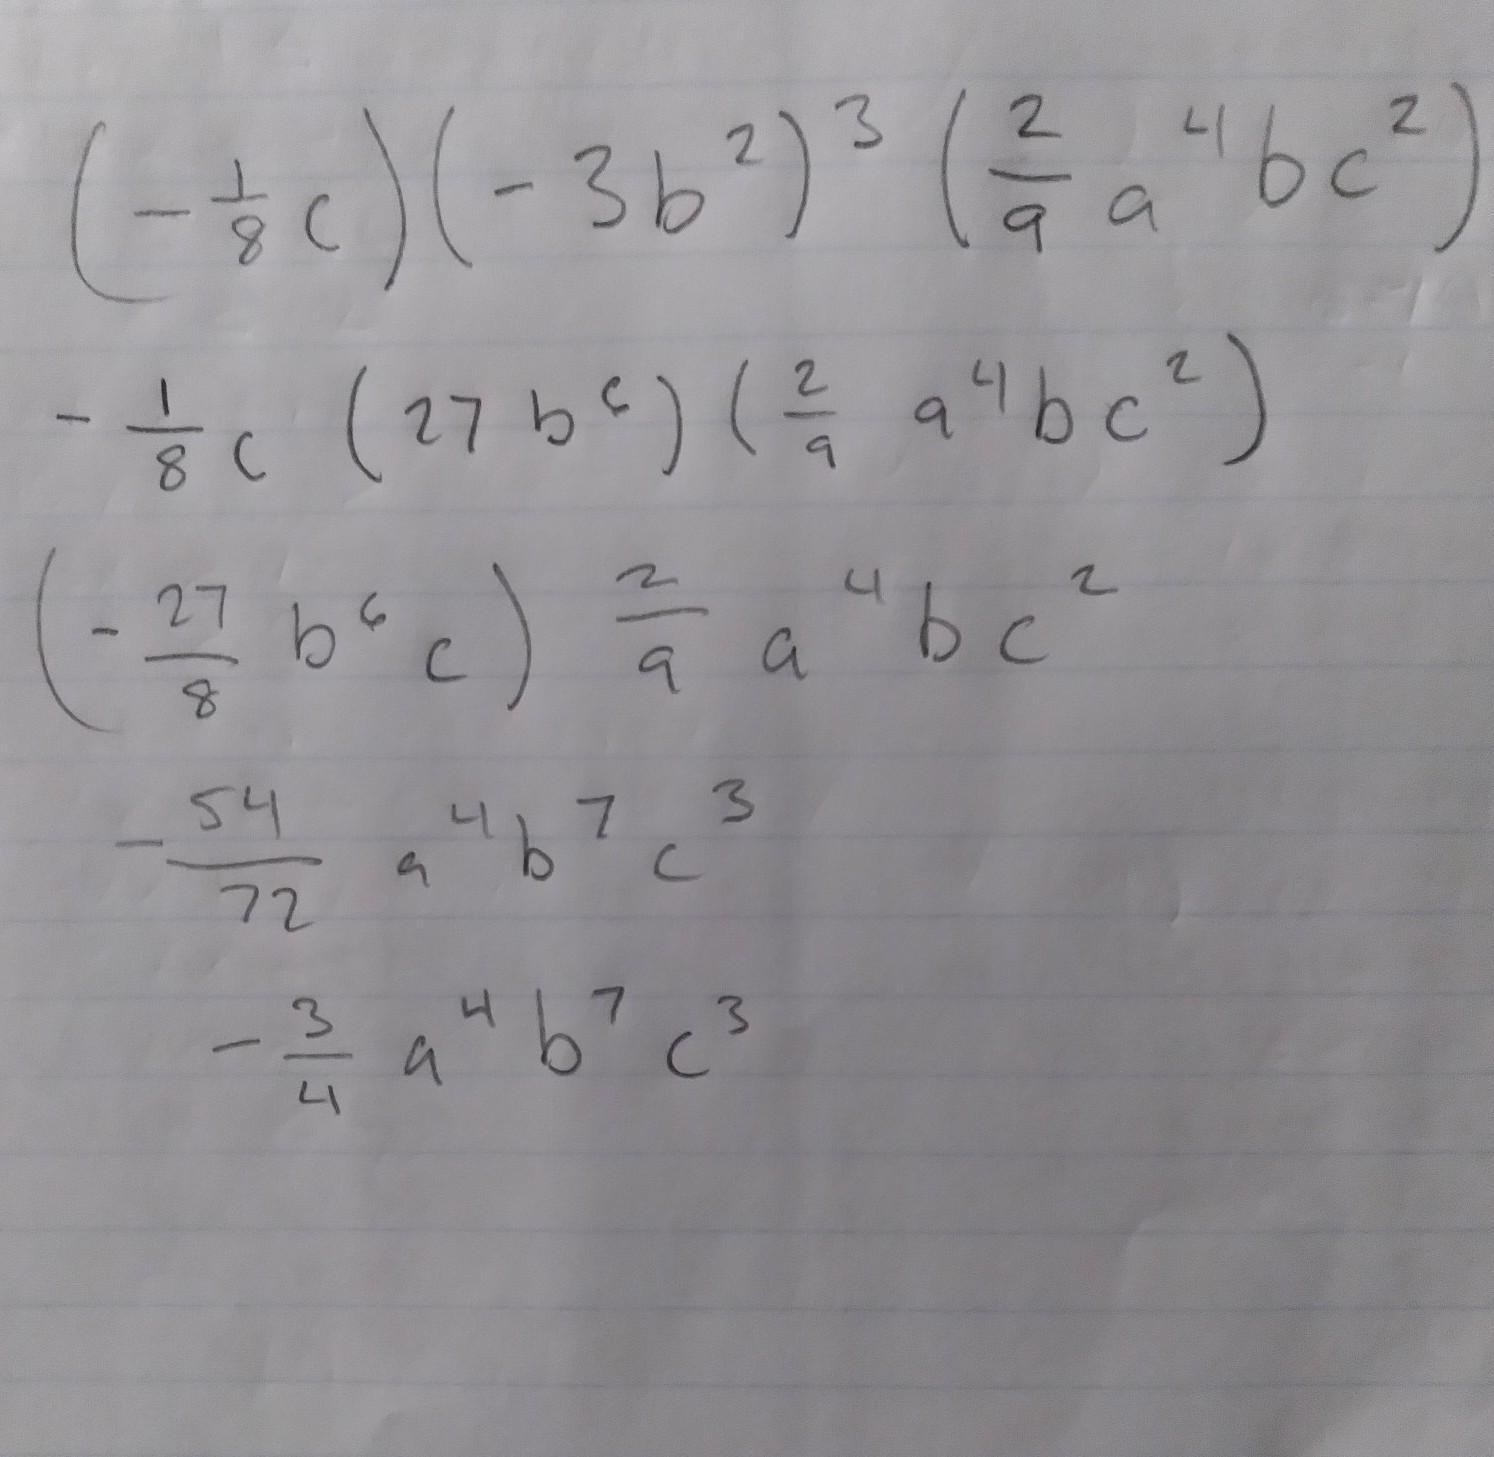 (-1/8 c)(-3b²)³(2/9 a⁴bc²)
-1/8 c (27b⁶)(2/9 a⁴bc²)
(-27/8 b⁶c) 2/9 a⁴bc²
-54/72 a⁴b⁷c³
-3/4 a⁴b⁷c³